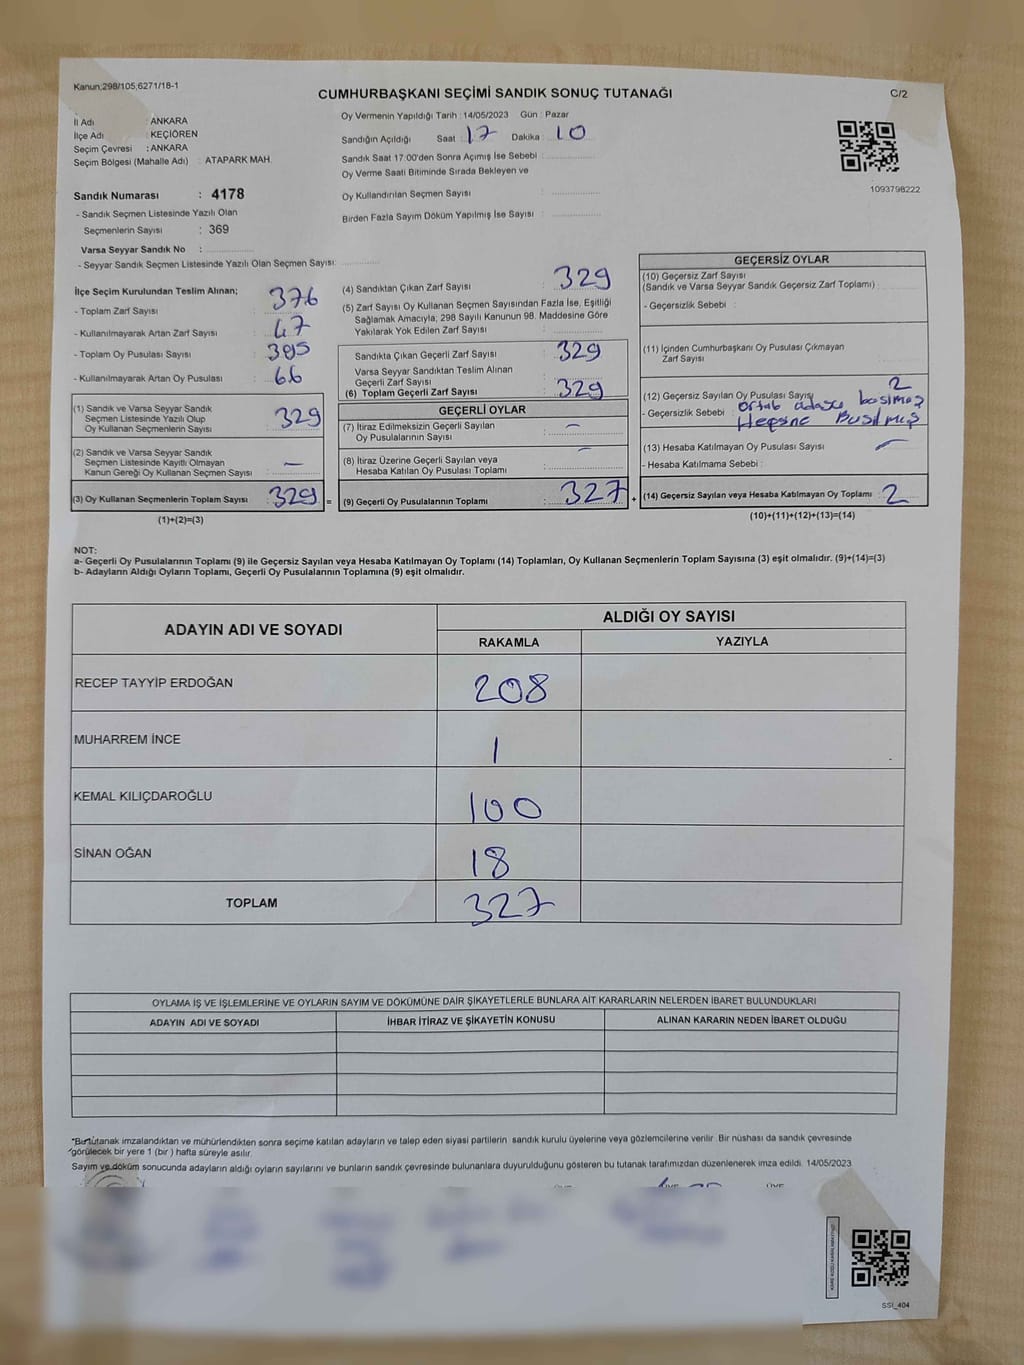 Kanun;298/105;6271/18-1
CUMHURBAŞKANI SEÇİMİ SANDIK SONUÇ TUTANAĞI
C/2
İl Adı : ANKARA
İlçe Adı : KEÇİÖREN
Seçim Çevresi : ANKARA
Seçim Bölgesi (Mahalle Adı) : ATAPARK MAH.
Oy Vermenin Yapıldığı Tarih : 14/05/2023 Gün : Pazar
Sandığın Açıldığı Saat : 17 Dakika : 10
Sandık Saat 17:00'den Sonra Açımış İse Sebebi :
Oy Verme Saati Bitiminde Sırada Bekleyen ve
Oy Kullandırılan Seçmen Sayısı :
Birden Fazla Sayım Döküm Yapılmış İse Sayısı :
1093798222
Sandık Numarası : 4178
- Sandık Seçmen Listesinde Yazılı Olan
Seçmenlerin Sayısı : 369
Varsa Seyyar Sandık No :
- Seyyar Sandık Seçmen Listesinde Yazılı Olan Seçmen Sayısı:
İlçe Seçim Kurulundan Teslim Alınan;
- Toplam Zarf Sayısı : 376
- Kullanılmayarak Artan Zarf Sayısı : 47
- Toplam Oy Pusulası Sayısı : 395
- Kullanılmayarak Artan Oy Pusulası : 66
(1) Sandık ve Varsa Seyyar Sandık
Seçmen Listesinde Yazılı Olup
Oy Kullanan Seçmenlerin Sayısı : 329
(2) Sandık ve Varsa Seyyar Sandık
Seçmen Listesinde Kayıtlı Olmayan
Kanun Gereği Oy Kullanan Seçmen Sayısı : —
(3) Oy Kullanan Seçmenlerin Toplam Sayısı : 329 =
(1)+(2)=(3)
(4) Sandıktan Çıkan Zarf Sayısı : 329
(5) Zarf Sayısı Oy Kullanan Seçmen Sayısından Fazla İse, Eşitliği
Sağlamak Amacıyla; 298 Sayılı Kanunun 98. Maddesine Göre
Yakılarak Yok Edilen Zarf Sayısı :
Sandıkta Çıkan Geçerli Zarf Sayısı : 329
Varsa Seyyar Sandıktan Teslim Alınan
Geçerli Zarf Sayısı :
(6) Toplam Geçerli Zarf Sayısı : 329
GEÇERLİ OYLAR
(7) İtiraz Edilmeksizin Geçerli Sayılan
Oy Pusulalarının Sayısı : —
(8) İtiraz Üzerine Geçerli Sayılan veya
Hesaba Katılan Oy Pusulası Toplamı : —
(9) Geçerli Oy Pusulalarının Toplamı : 327 +
GEÇERSİZ OYLAR
(10) Geçersiz Zarf Sayısı
(Sandık ve Varsa Seyyar Sandık Geçersiz Zarf Toplamı) :
- Geçersizlik Sebebi :
(11) İçinden Cumhurbaşkanı Oy Pusulası Çıkmayan
Zarf Sayısı :
(12) Geçersiz Sayılan Oy Pusulası Sayısı 2
- Geçersizlik Sebebi : basılmış
Hepsine Basılmış
(13) Hesaba Katılmayan Oy Pusulası Sayısı : —
- Hesaba Katılmama Sebebi :
(14) Geçersiz Sayılan veya Hesaba Katılmayan Oy Toplamı : 2
(10)+(11)+(12)+(13)=(14)
NOT:
a- Geçerli Oy Pusulalarının Toplamı (9) ile Geçersiz Sayılan veya Hesaba Katılmayan Oy Toplamı (14) Toplamları, Oy Kullanan Seçmenlerin Toplam Sayısına (3) eşit olmalıdır. (9)+(14)=(3)
b- Adayların Aldığı Oyların Toplamı, Geçerli Oy Pusulalarının Toplamına (9) eşit olmalıdır.
ADAYIN ADI VE SOYADI
ALDIĞI OY SAYISI
RAKAMLA YAZIYLA
RECEP TAYYİP ERDOĞAN 208
MUHARREM İNCE 1
KEMAL KILIÇDAROĞLU 100
SİNAN OĞAN 18
TOPLAM 327
OYLAMA İŞ VE İŞLEMLERİNE VE OYLARIN SAYIM VE DÖKÜMÜNE DAİR ŞİKAYETLERLE BUNLARA AİT KARARLARIN NELERDEN İBARET BULUNDUKLARI
ADAYIN ADI VE SOYADI İHBAR İTİRAZ VE ŞİKAYETİN KONUSU ALINAN KARARIN NEDEN İBARET OLDUĞU
*Bu tutanak imzalandıktan ve mühürlendikten sonra seçime katılan adayların ve talep eden siyasi partilerin sandık kurulu üyelerine veya gözlemcilerine verilir. Bir nüshası da sandık çevresinde
görülecek bir yere 1 (bir ) hafta süreyle asılır.
Sayım ve döküm sonucunda adayların aldığı oyların sayılarını ve bunların sandık çevresinde bulunanlara duyurulduğunu gösteren bu tutanak tarafımızdan düzenlenerek imza edildi. 14/05/2023
SSI_404